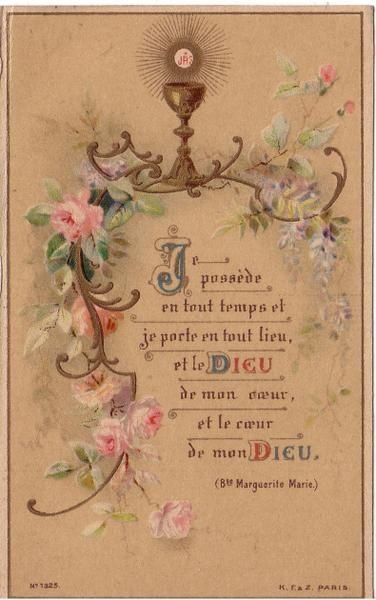 JHS
Je
possède
en tout temps et
je porte en tout lieu,
et le DIEU
de mon cœur,
et le cœur
de mon DIEU.
(Bse Marguerite Marie.)
No 1325.
K. F. & Z. PARIS.